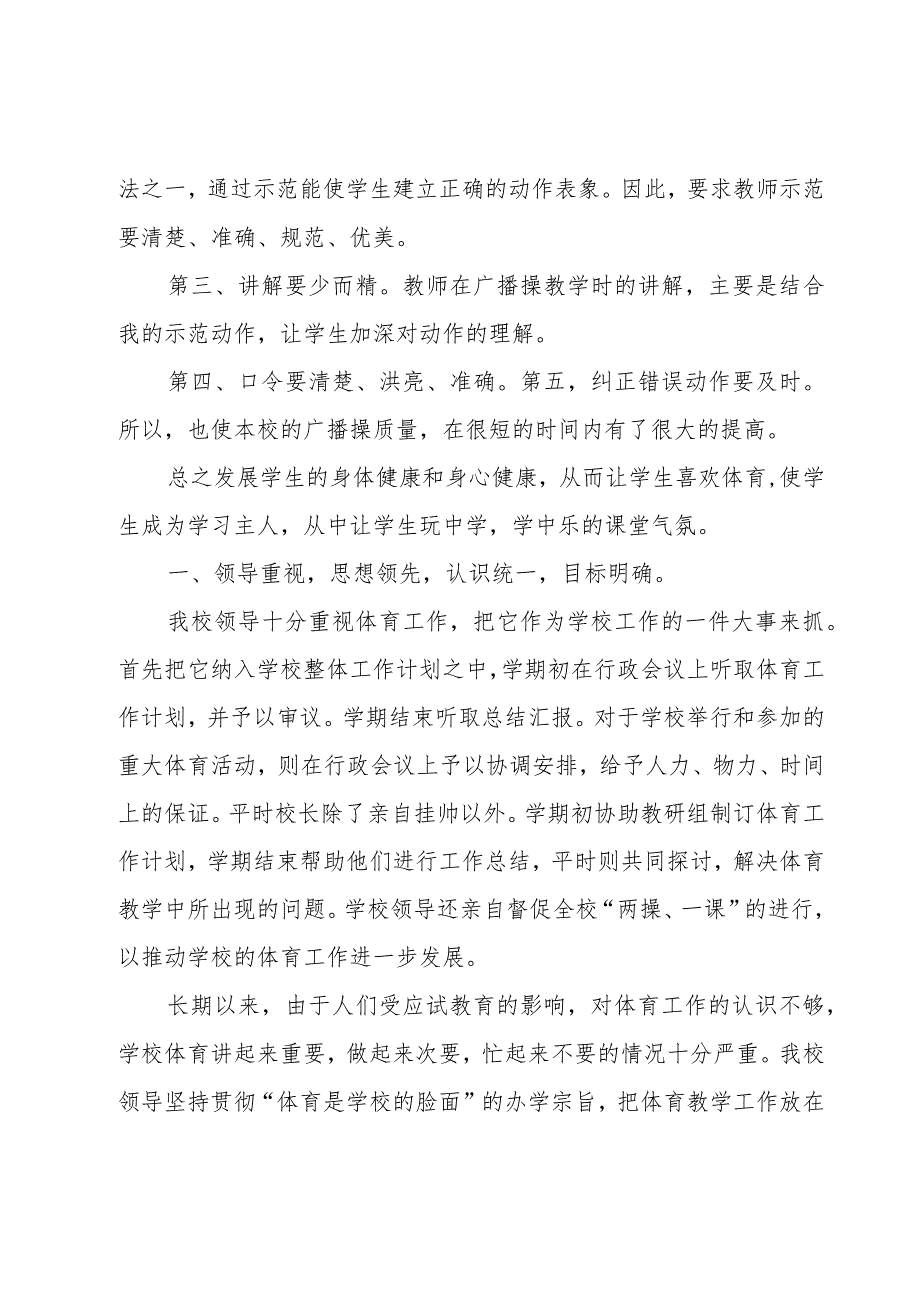 法之一，通过示范能使学生建立正确的动作表象。因此，要求教师示范
要清楚、准确、规范、优美。
第三、讲解要少而精。教师在广播操教学时的讲解，主要是结合
我的示范动作，让学生加深对动作的理解。
第四、口令要清楚、洪亮、准确。第五，纠正错误动作要及时。
所以，也使本校的广播操质量，在很短的时间内有了很大的提高。
总之发展学生的身体健康和身心健康，从而让学生喜欢体育,使学
生成为学习主人，从中让学生玩中学，学中乐的课堂气氛。
一、领导重视，思想领先，认识统一，目标明确。
我校领导十分重视体育工作，把它作为学校工作的一件大事来抓。
首先把它纳入学校整体工作计划之中,学期初在行政会议上听取体育工
作计划，并予以审议。学期结束听取总结汇报。对于学校举行和参加的
重大体育活动，则在行政会议上予以协调安排，给予人力、物力、时间
上的保证。平时校长除了亲自挂帅以外。学期初协助教研组制订体育工
作计划，学期结束帮助他们进行工作总结，平时则共同探讨，解决体育
教学中所出现的问题。学校领导还亲自督促全校“两操、一课”的进行，
以推动学校的体育工作进一步发展。
长期以来，由于人们受应试教育的影响，对体育工作的认识不够，
学校体育讲起来重要，做起来次要，忙起来不要的情况十分严重。我校
领导坚持贯彻“体育是学校的脸面”的办学宗旨，把体育教学工作放在